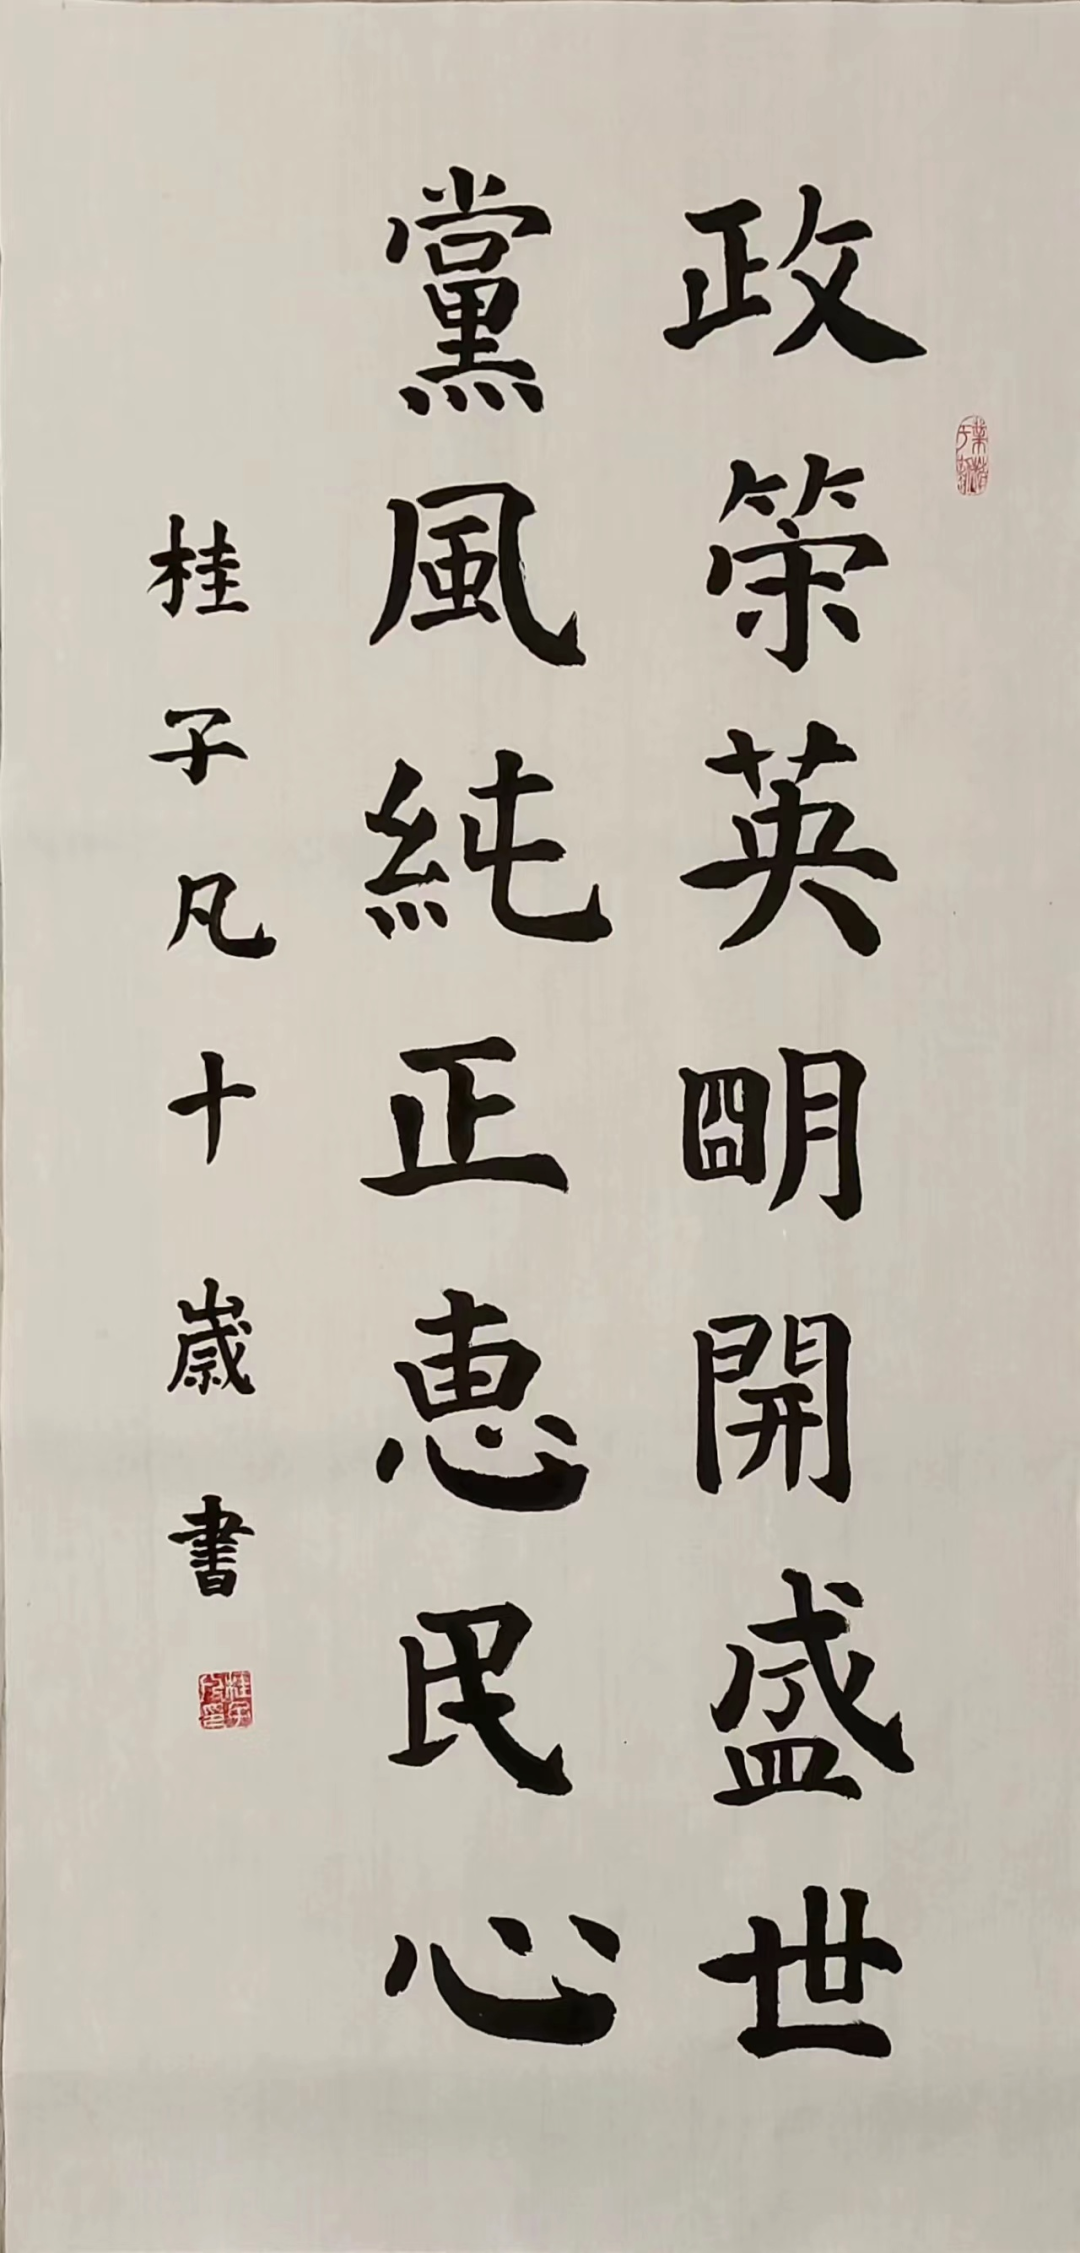 政策英明開盛世
黨風純正惠民心
桂子凡十歲書